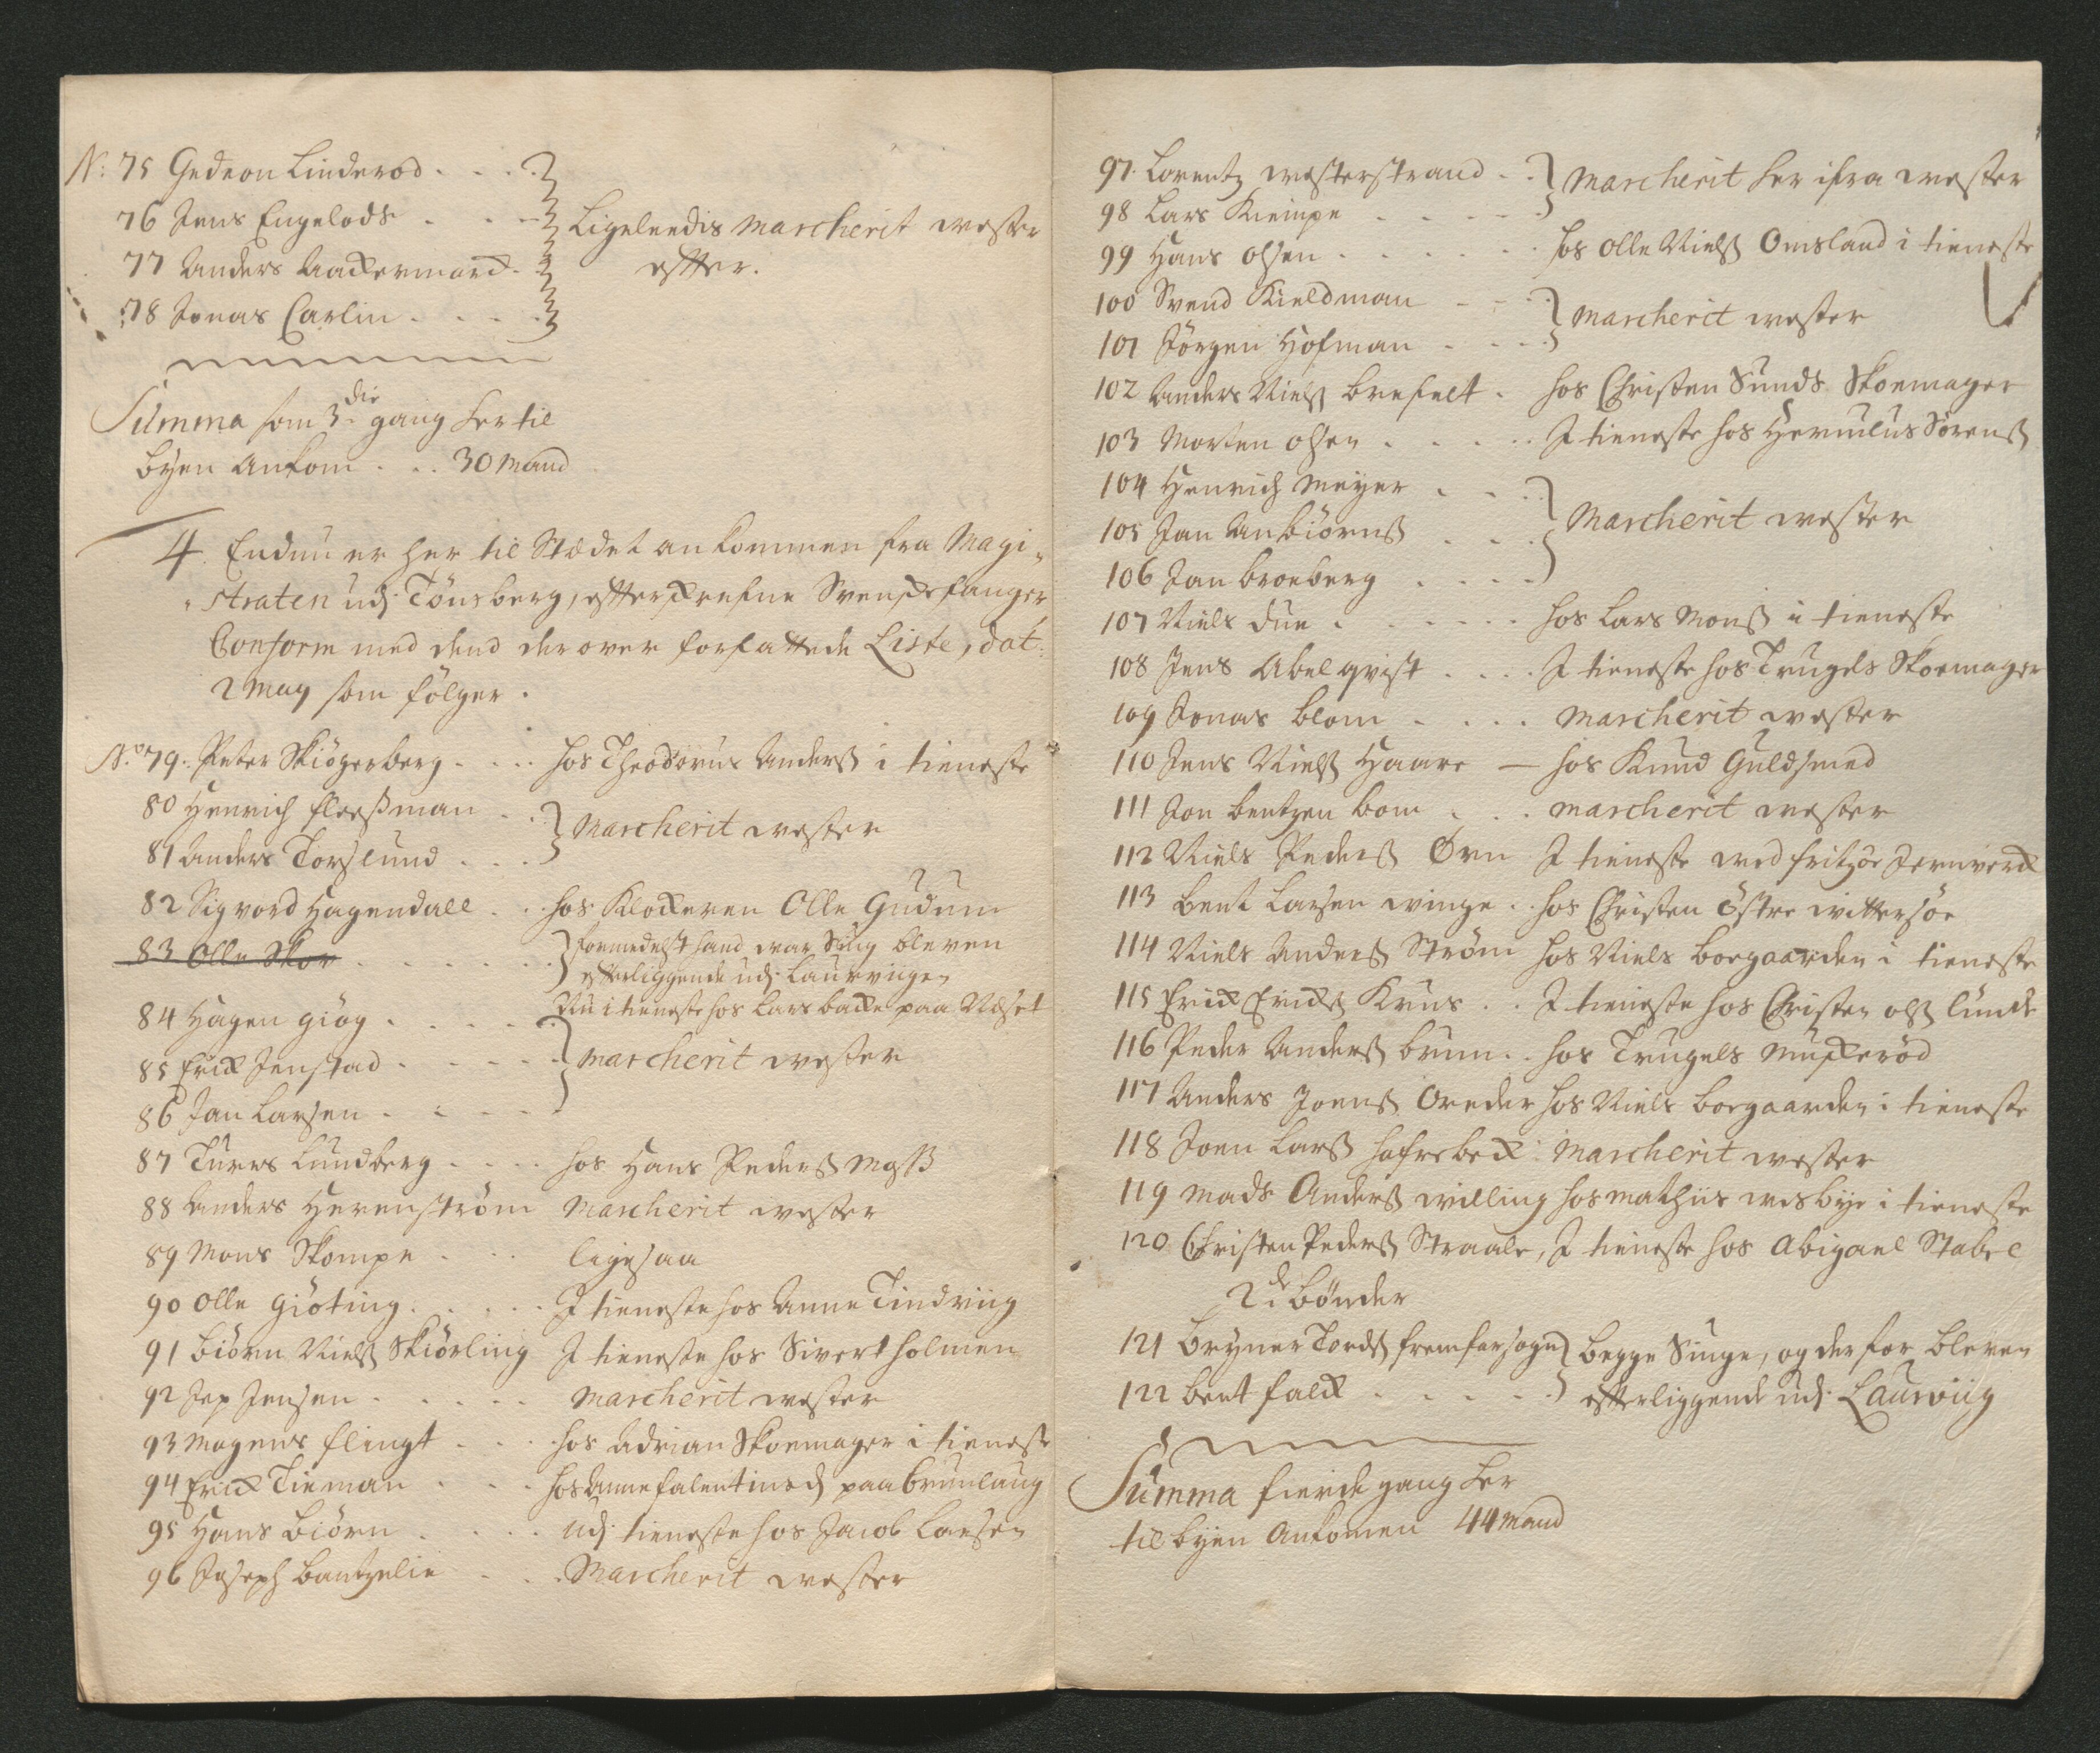 N: 75 Gedeon Linderod
76 Jens Engelods
77 Anders Aackermand
78 Jonas Carlin
Ligeleedis marcherit wester
effter.
Summa som 3die gang her til
byen Ankom 30 Mand
4 Endnu er her til Stædet ankommen fra Magi„
„straten udj Tönsberg, effterskrefne Svenskefanger
Conform med dend derover forfattede Liste, dat:
2 May som fölger.
No 79. Peter Skiögerberg hos Theodorus Anderss i tieneste
80 Henrich fleessman
81 Anders Torslund
marcherit wester
82 Sigvord Hagendall hos Klockeren Olle Gudum
83 Olle Skor formedelst hand war Siug bleven
effterliggende udj Laurviigen
Nu i tieneste hos Lars backe paa Næset
84 Hagen giög
85 Erick Jenstad
86 Jan Larsen
marcherit wester
87 Tures Lundberg hos Hans Pederss
88 Anders Herenström Marcherit wester
89 Mons Skompe ligesaa
90 Olle Giöting I tieneste hos Anne Tindviig
91 Biörn Nielss Skiörling I tieneste hos Sivert holmen
92 Jep Jensen marcherit wester
93 Mogens flingt hos Adrian Skoemager i tieneste
94 Erick Tieman hos Anne falentinsd paa brunlaug
95 Hans Biörn udj tieneste hos Jacob Larsen
96 Joseph Bantzelie Marcherit wester
97 Lorentz westerstrand
98 Lars Kiempe
marcherit her ifra wester
99 Hans olsen hos olle Nielss Omsland i tieneste
100 Svend Kieldman
101 Jörgen Hofman
marcherit wester
102 Anders Nielss brefelt hos Christen Sunds Skoemager
103 Morten olsen I tieneste hos Herculus Sörenss
104 Henrich Meyer
105 Jan Anbiörnss
106 Jan broeberg
Marcherit wester
107 Niels due hos Lars Monss i tieneste
108 Jens Abelqvist I tieneste hos Trugels Skoemager
109 Jonas blom marcherit wester
110 Jens Nielss Haare — hos Knud Guldsmed
111 Jon bentzen bom marcherit wester
112 Niels Pederss Örn I tieneste wed fritzöe Jernverck
113 bent Larsen winge hos Christen östre wittersöe
114 Niels Anderss Ström hos Niels borgaarden i tieneste
115 Erick Ericks Krus I tieneste hos Christen olss lunde
116 Peder Anderss brun hos Trugels Muskeröd
117 Anders Joenss Oreder hos Niels borgaarden i tieneste
118 Joen Larss hafrebek Marcherit wester
119 Mads Anderss willing hos Mathiis wesbye i tieneste
120 Christen Pederss Straale, I tieneste hos Abigael Stabel
2de Bönder
121 Bryner Tordss fremfarsogn
122 bent falck
begge Siuge, og derfor bleven
effterliggende udj Laurviig
Summa fierde gang her
til byen Ankomen 44 mand